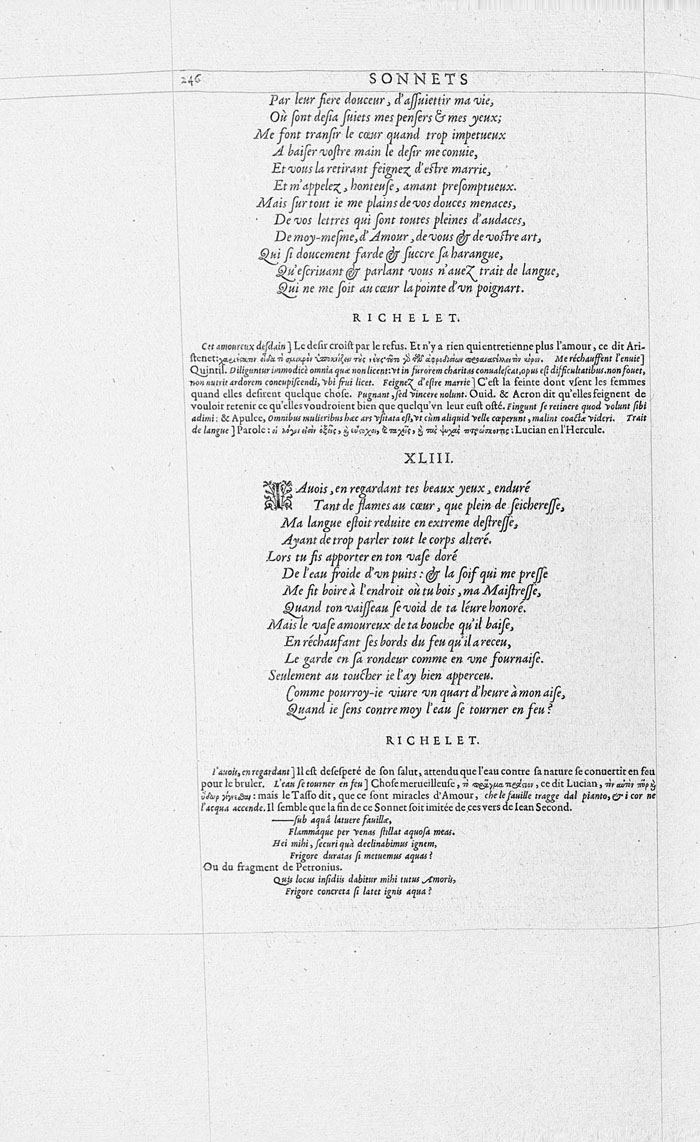 246 SONNETS
Par leur fiere douceur, d'aſſuiettir ma vie,
Où ſont deſia ſuiets mes penſers & mes yeux;
Me font tranſir le cœur quand trop impetueux
A baiſer voſtre main le deſir me conuie,
Et vous la retirant feignez d'eſtre marrie,
Et m'appelez, honteuſe, amant preſomptueux.
Mais ſur tout ie me plains de vos douces menaces,
De vos lettres qui ſont toutes pleines d'audaces,
De moy-meſme, d'Amour, de vous & de voſtre art,
Qui ſi doucement farde & ſuccre ſa harangue,
Qu'eſcriuant & parlant vous n'auez trait de langue,
Qui ne me ſoit au cœur la pointe d'vn poignart.
RICHELET.
Cet amoureux deſdain] Le deſir croiſt par le refus. Et n'y a rien qui entretienne plus l'amour, ce dit Ari-
ſtenet: Me réchauffent l'enuie]
Quintil. Diliguntur immodicè omnia quæ non licent: vt in furorem charitas conualeſcat, opus eſt difficultatibus. non fouet,
non nutrit ardorem concupiſcendi, vbi frui licet. Feignez d'eſtre marrie] C'eſt la feinte dont vſent les femmes
quand elles deſirent quelque choſe. Pugnant, ſed vincere nolunt. Ouid. & Acron dit qu'elles feignent de
vouloir retenir ce qu'elles voudroient bien que quelqu'vn leur euſt oſté. Fingunt ſe retinere quod volunt ſibi
adimi: & Apulee, Omnibus mulieribus hæc ars vſitata eſt, vt cùm aliquid velle cœperunt, malint coactæ videri. Trait
de langue] Parole: : Lucian en l'Hercule.
XLIII.
I'Auois, en regardant tes beaux yeux, enduré
Tant de flames au cœur, que plein de ſeichereſſe,
Ma langue eſtoit reduite en extreme deſtreſſe,
Ayant de trop parler tout le corps alteré.
Lors tu fis apporter en ton vaſe doré
De l'eau froide d'vn puits: & la ſoif qui me preſſe
Me fit boire à l'endroit où tu bois, ma Maiſtreſſe,
Quand ton vaiſſeau ſe void de ta léure honoré.
Mais le vaſe amoureux de ta bouche qu'il baiſe,
En réchaufant ſes bords du feu qu'il a receu,
Le garde en ſa rondeur comme en vne fournaiſe.
Seulement au toucher ie l'ay bien apperceu.
Comme pourroy-ie viure vn quart d'heure à mon aiſe,
Quand ie ſens contre moy l'eau ſe tourner en feu?
RICHELET.
I'auois, en regardant] Il eſt deſeſperé de ſon ſalut, attendu que l'eau contre ſa nature ſe conuertit en feu
pour le bruler. L'eau ſe tourner en feu] Choſe merueilleuſe, ce dit Lucian,
: mais le Taſſo dit, que ce ſont miracles d'Amour, che le fauille tragge dal pianto, & i cor ne
l'acqua accende. Il ſemble que la fin de ce Sonnet ſoit imitée de ces vers de Iean Second.
——ſub aquâ latuere fauillæ,
Flammáque per venas ſtillat aquoſa meas.
Hei mihi, ſecuri quà declinabimus ignem,
Frigore duratas ſi metuemus aquas?
Ou du fragment de Petronius.
Quis locus inſidiis dabitur mihi tutus Amoris,
Frigore concreta ſi latet ignis aqua?